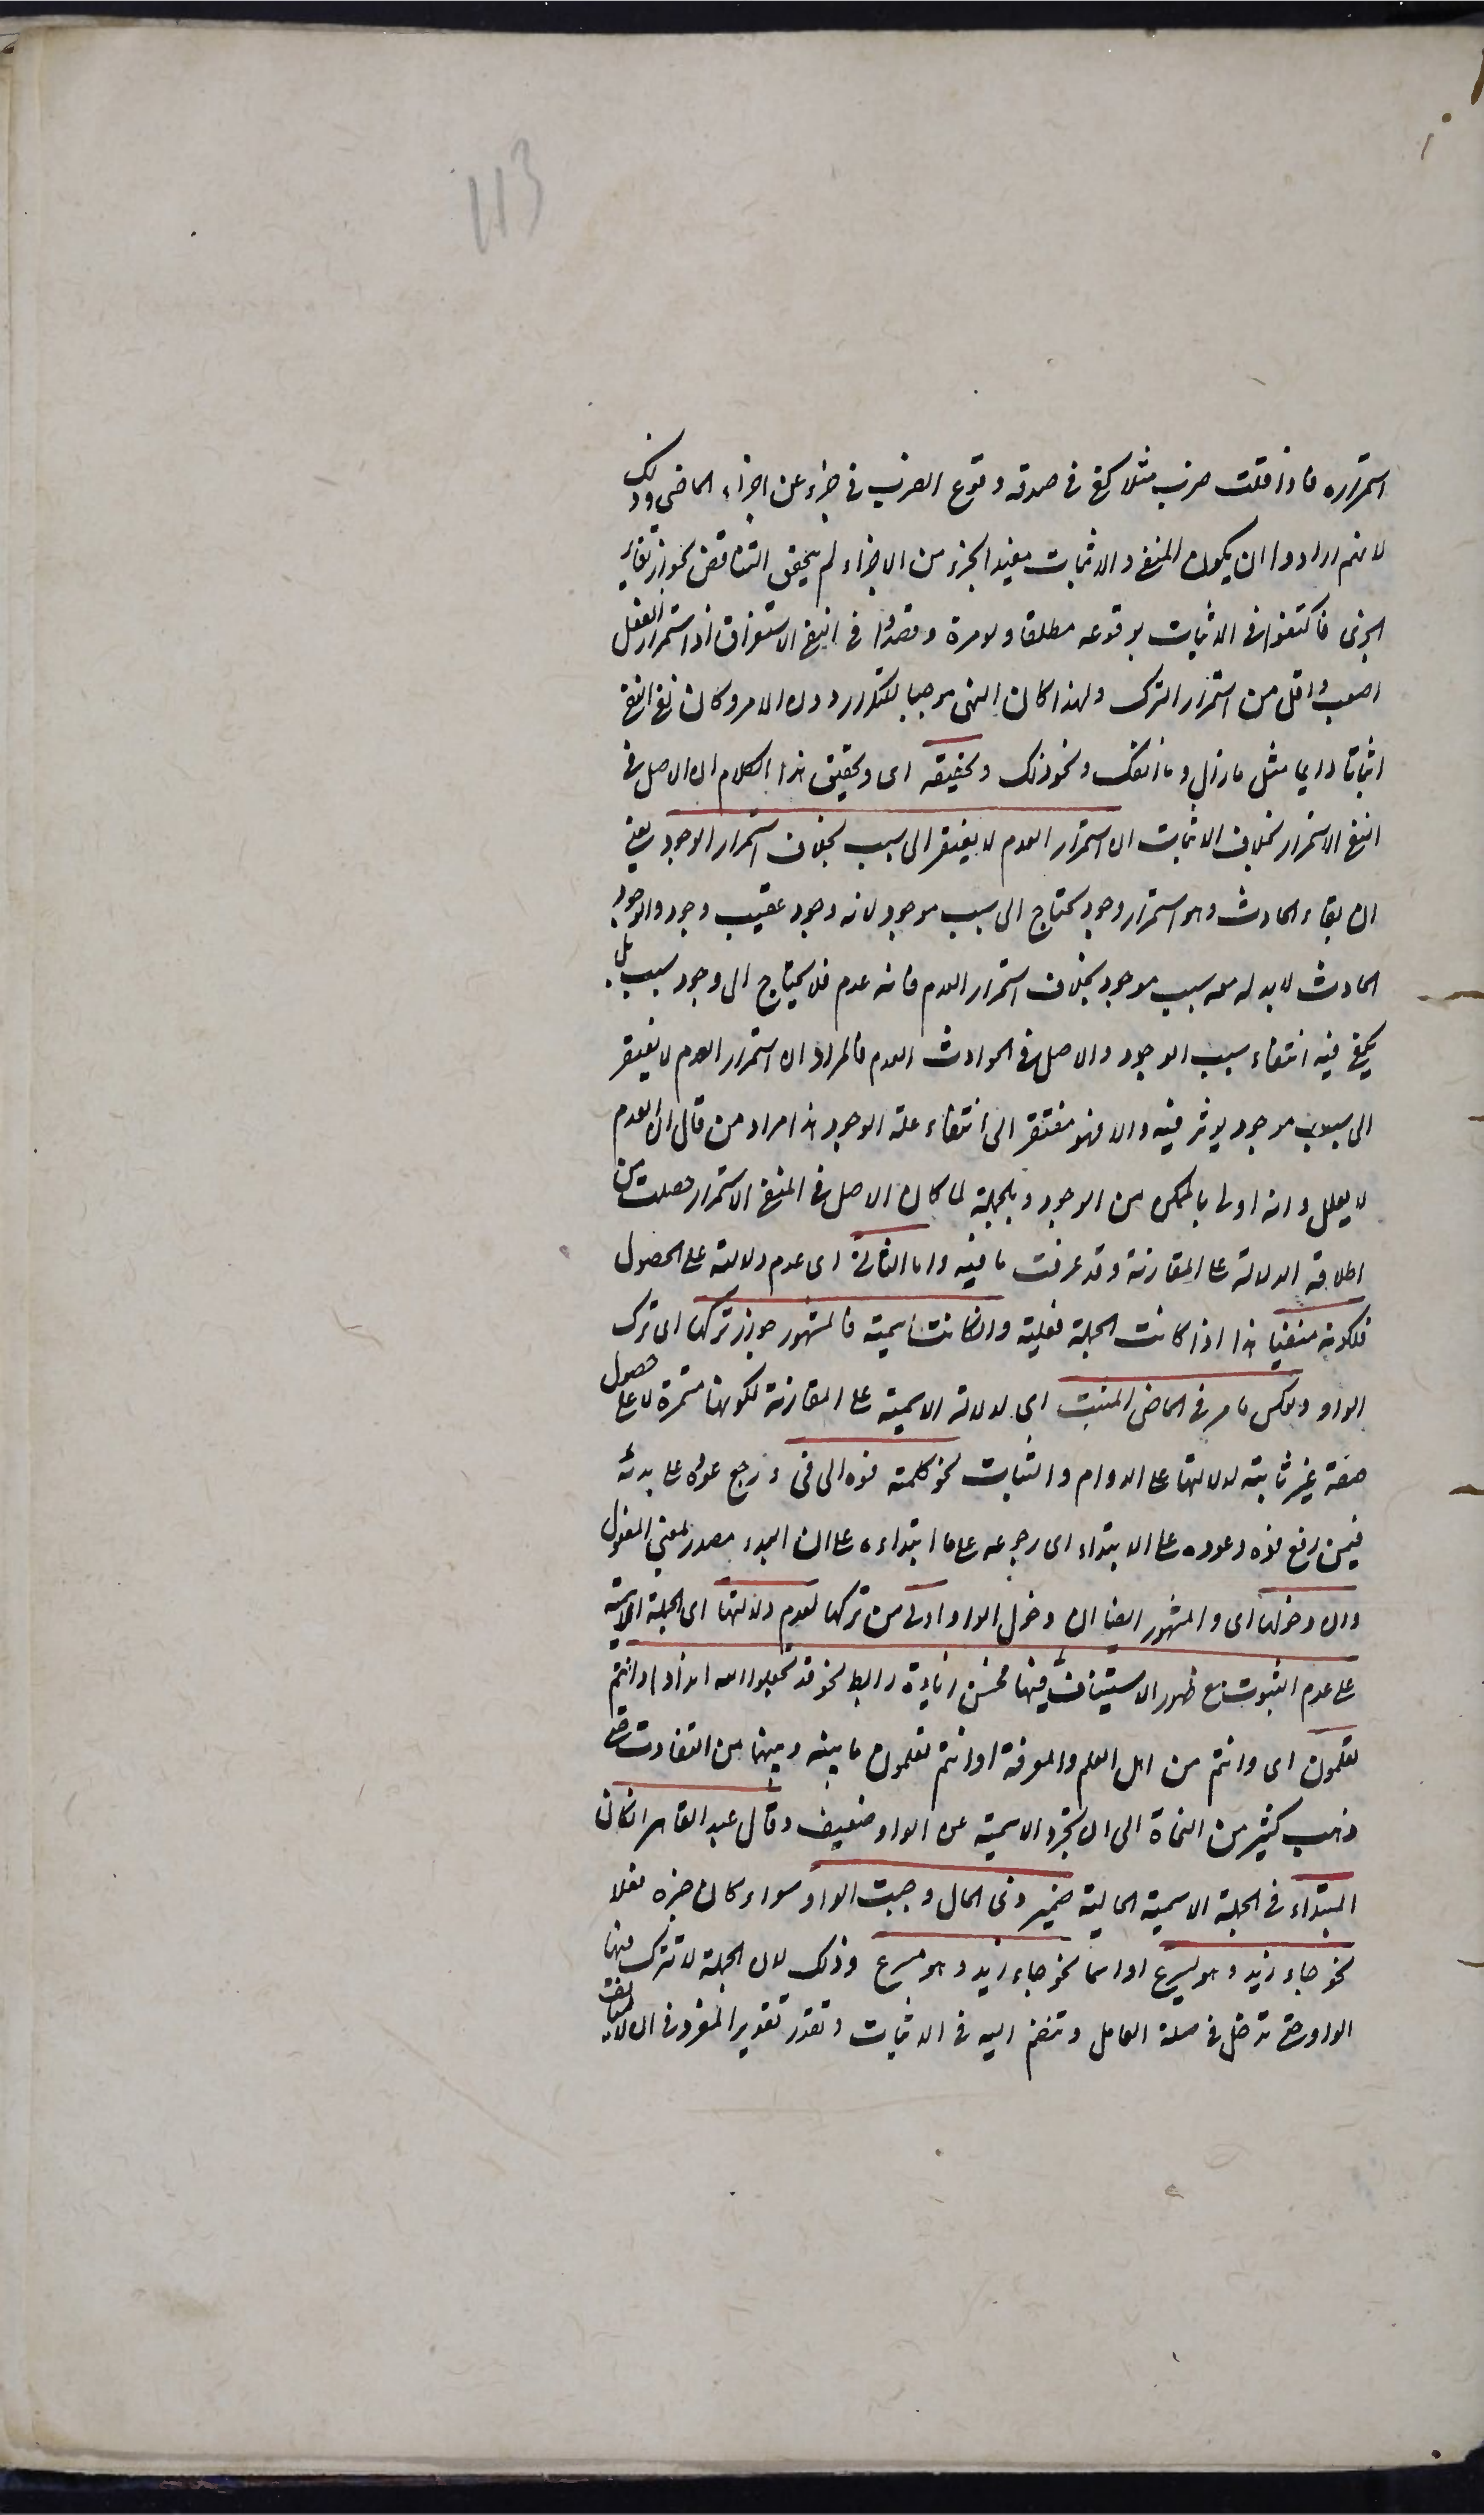 113
استمراره فاذا قلت ضرب مثلا كفى فى صدقه وقوع الضرب فى جزء من اجزاء الماضى وذلك
لانهم ارادوا ان يكون المنفى والاثبات مقيدا لجزء من الاجزاء لم يتحقق التناقض لجواز تغاير
الجزئى فاكتفوا فى الاثبات بوقوعه مطلقا ولو مرة وقصدوا فى النفى الاستغراق اذ استمرار الفعل
اصعب واقل من استمرار الترك ولهذا كان النهى موجبا للتكرار دون الامر وكان نفى النفى
اثباتا دايما مثل مازال وما انفك ونحو ذلك وتحقيقه اى وتحقيق هذا الكلام ان الاصل فى
النفى الاستمرار بخلاف الاثبات ان استمرار العدم لا يفتقر الى سبب بخلاف استمرار الوجود يعنى
ان بقاء الحادث وهو استمرار وجوده محتاج الى سبب موجود لانه وجود عقيب وجود والوجود
الحادث لابد له من سبب موجود بخلاف استمرار العدم فانه عدم فلا يحتاج الى وجود سبب بل
يكفى فيه انتفاء سبب الوجود والاصل فى الحوادث العدم فالمراد ان استمرار العدم لا يفتقر
الى سبب موجود يوثر فيه والا فهو مفتقر الى انتفاء علة الوجود هذا مراد من قال ان العدم
لا يعلل وانه اولى بالممكن من الوجود وبالجملة لما كان الاصل فى المنفى الاستمرار حصلت من
اطلاقه الدلالة على المقارنة وقد عرفت ما فيه واما الثانى اى عدم دلالته على الحصول
فلكونه منفيا هذا اذا كانت الجملة فعلية وان كانت اسمية فالمشهور جواز تركها اى ترك
الواو وبعكس ما مر فى الماضى المثبت اى لدلالة الاسمية على المقارنة لكونها مستمرة لا على حصول
صفة غير ثابتة لدلالتها على الدوام والثبات نحو كلمته فوه الى فى ورجع عوده على بدئه
فيمن رفع فوه وعوده على الابتداء اى رجوعه على ما ابتداءه على ان البدء مصدر بمعنى المفعول
وان دخولها اى والمشهور ايضا ان دخول الواو اولى من تركها لعدم دلالتها اى الجملة الاسمية
على عدم الثبوت مع ظهور الاستيناف فيها فحسن زيادة رابط نحو فلا تجعلوا لله اندادا وانتم
تعلمون اى وانتم من اهل العلم والمعرفة او انتم تعلمون ما بينه وبينها من التفاوت حتى
ذهب كثير من النحاة الى ان تجرد الاسمية عن الواو ضعيف وقال عبد القاهر ان كان
المبتداء فى الجملة الاسمية الحالية ضمير ذى الحال وجبت الواو سواء كان خبره فعلا
نحو جاء زيد وهو يسرع او اسما نحو جاء زيد وهو مسرع وذلك لان الجملة لا تترك فيها
الواو حتى تدخل فى صلة العامل وتنضم اليه فى الاثبات وتقدر تقدير المفرد فى ان لا يستانف